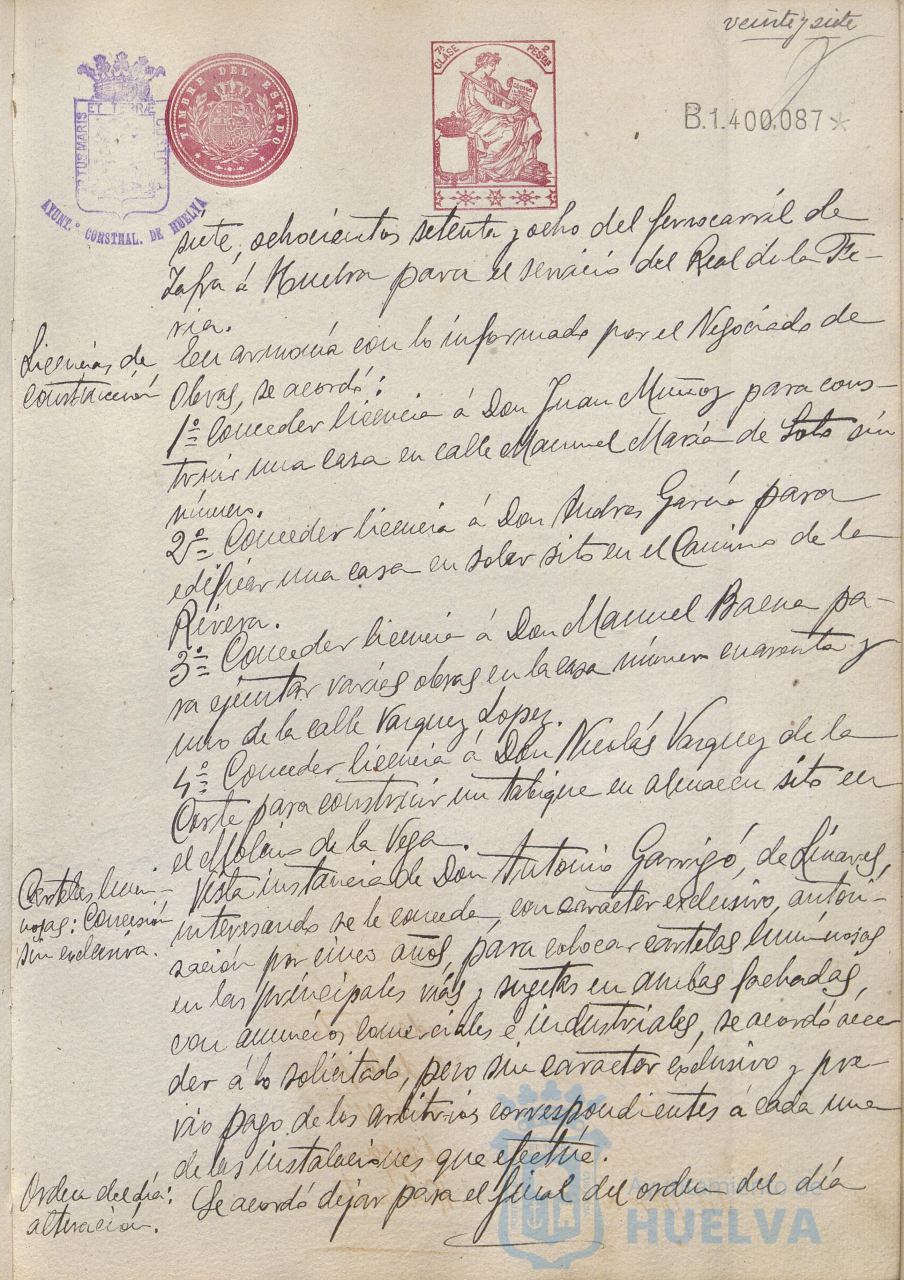 veinte y siete
7ª CLASE 2 PESTAS
TIMBRE DEL ESTADO
B.1.400.087*
PORTUS MARIS ET TERRÆ CUSTODIA
AYUNT.º CONSTNAL. DE HUELVA
siete, ochocientos setenta y ocho del ferrocarril de
Zafra á Huelva para el servicio del Real de la Fe-
ria.
Licencias de
construcción
En armonía con lo informado por el Negociado de
Obras, se acordó:
1º= Conceder licencia á Don Juan Muñoz para cons-
truir una casa en calle Manuel María de Soto sin
número.
2º= Conceder licencia á Don Andres García para
edificar una casa en solar sito en el Camino de la
Rivera.
3º= Conceder licencia á Don Manuel Baena pa-
ra ejecutar varias obras en la casa número cuarenta y
uno de la calle Vazquez Lopez.
4º= Conceder licencia á Don Nicolás Vazquez de la
Corte para construir un tabique en almacen sito en
el Molino de la Vega.
Cartelas lumi-
nosas: Concesión
sin exclusiva.
Vista instancia de Don Antonio Garrigó, de Linares,
interesando se le conceda, con caracter exclusivo, autori-
zación por cinco años, para colocar cartelas luminosas
en las principales vías y sujetas en ambas fachadas,
con anuncios comerciales e industriales, se acordó acce
der á lo solicitado, pero sin caracter exclusivo y pre-
vio pago de los arbitrios correspondientes á cada una
de las instalaciones que efectúe.
Orden del día:
alteración.
Se acordó dejar para el final del orden del día
Ayuntamiento de
HUELVA